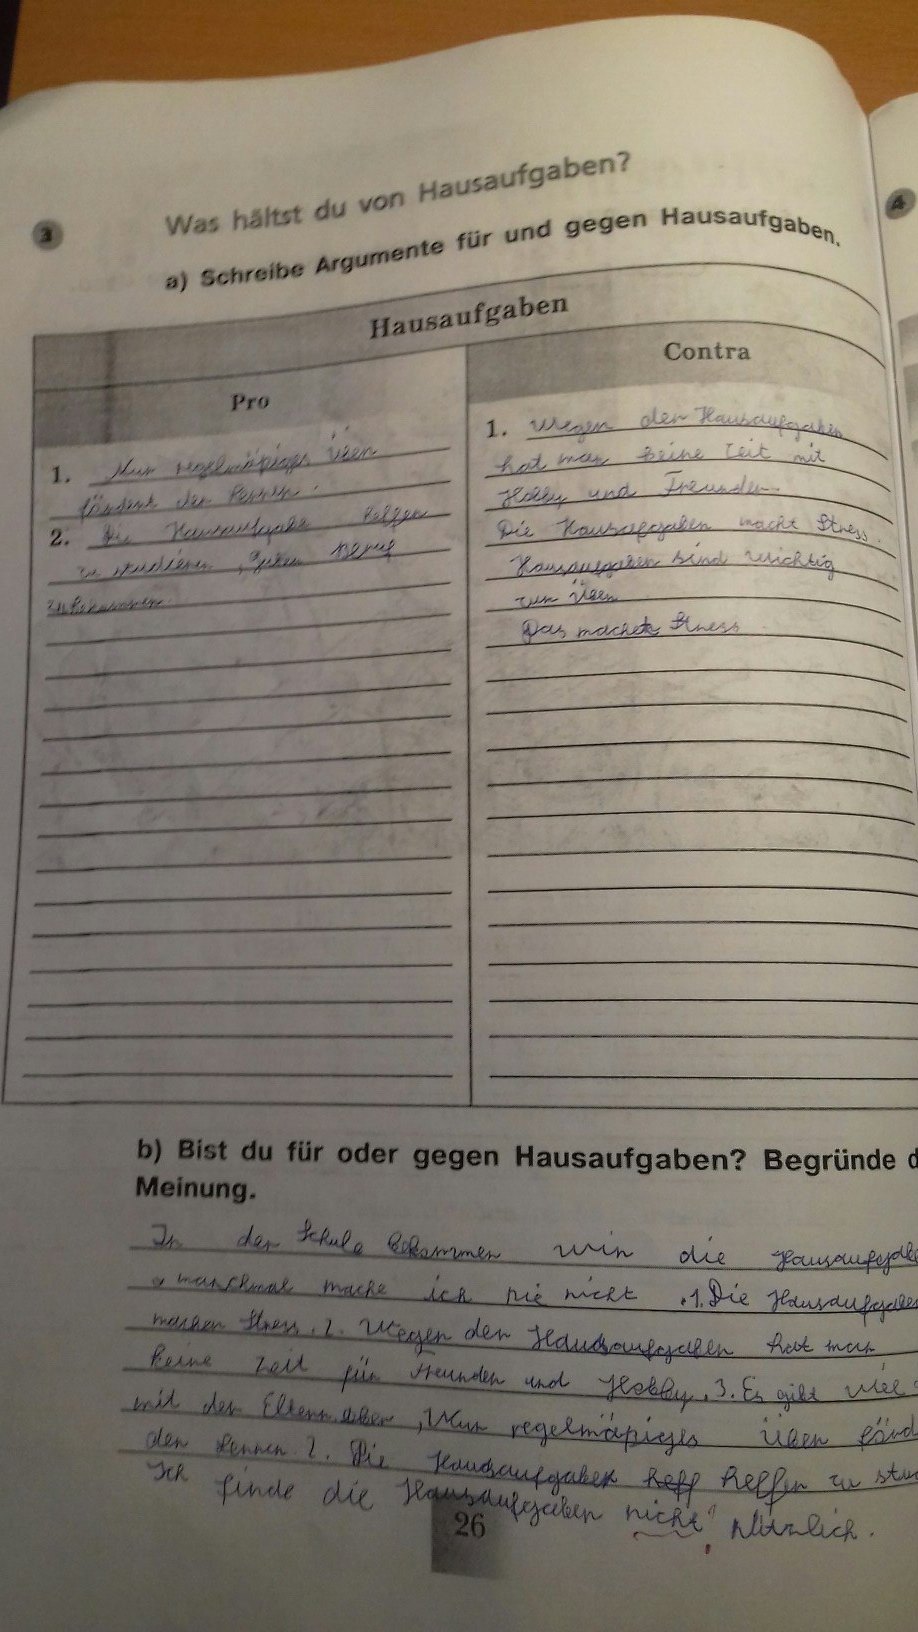 3
Was hältst du von Hausaufgaben?
4
a) Schreibe Argumente für und gegen Hausaufgaben.
Hausaufgaben
Pro
Contra
1. Nur regelmäßiges üben
fördert der Lernen.
2. Die Hausaufgabe helfen
zu studieren, guten Beruf
zu bekommen.
1. Wegen der Hausaufgaben
hat man keine Zeit mit
Hobby und Freunden.
Die Hausaufgaben macht Stress.
Hausaufgaben sind wichtig
zum Üben
Das machet Stress
b) Bist du für oder gegen Hausaufgaben? Begründe d
Meinung.
In der Schule bekommen wir die Hausaufgabe
manchmal mache ich sie nicht. 1. Die Hausaufgaben
machen Stress. 2. Wegen der Hausaufgaben hat man
keine Zeit für Freunden und Hobby. 3. Es gibt
mit der Eltern. Aber, Nur regelmäßiges üben förd
den Lernen. 2. Die Hausaufgaben helfen zu stu
Ich finde die Hausaufgaben nicht nützlich.
26